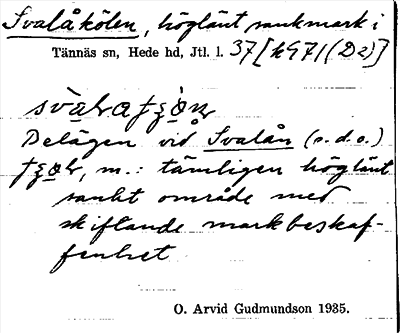 Svalåkölen, höglänt sankmark i
Tännäs sn, Hede hd, Jtl. l. 37 [k 971 (D2)]
Delägen vid Svalån (s.d.o.)
m.: tämligen höglänt
sankt område med
skiftande markbeskaf-
fenhet
O. Arvid Gudmundson 1935.